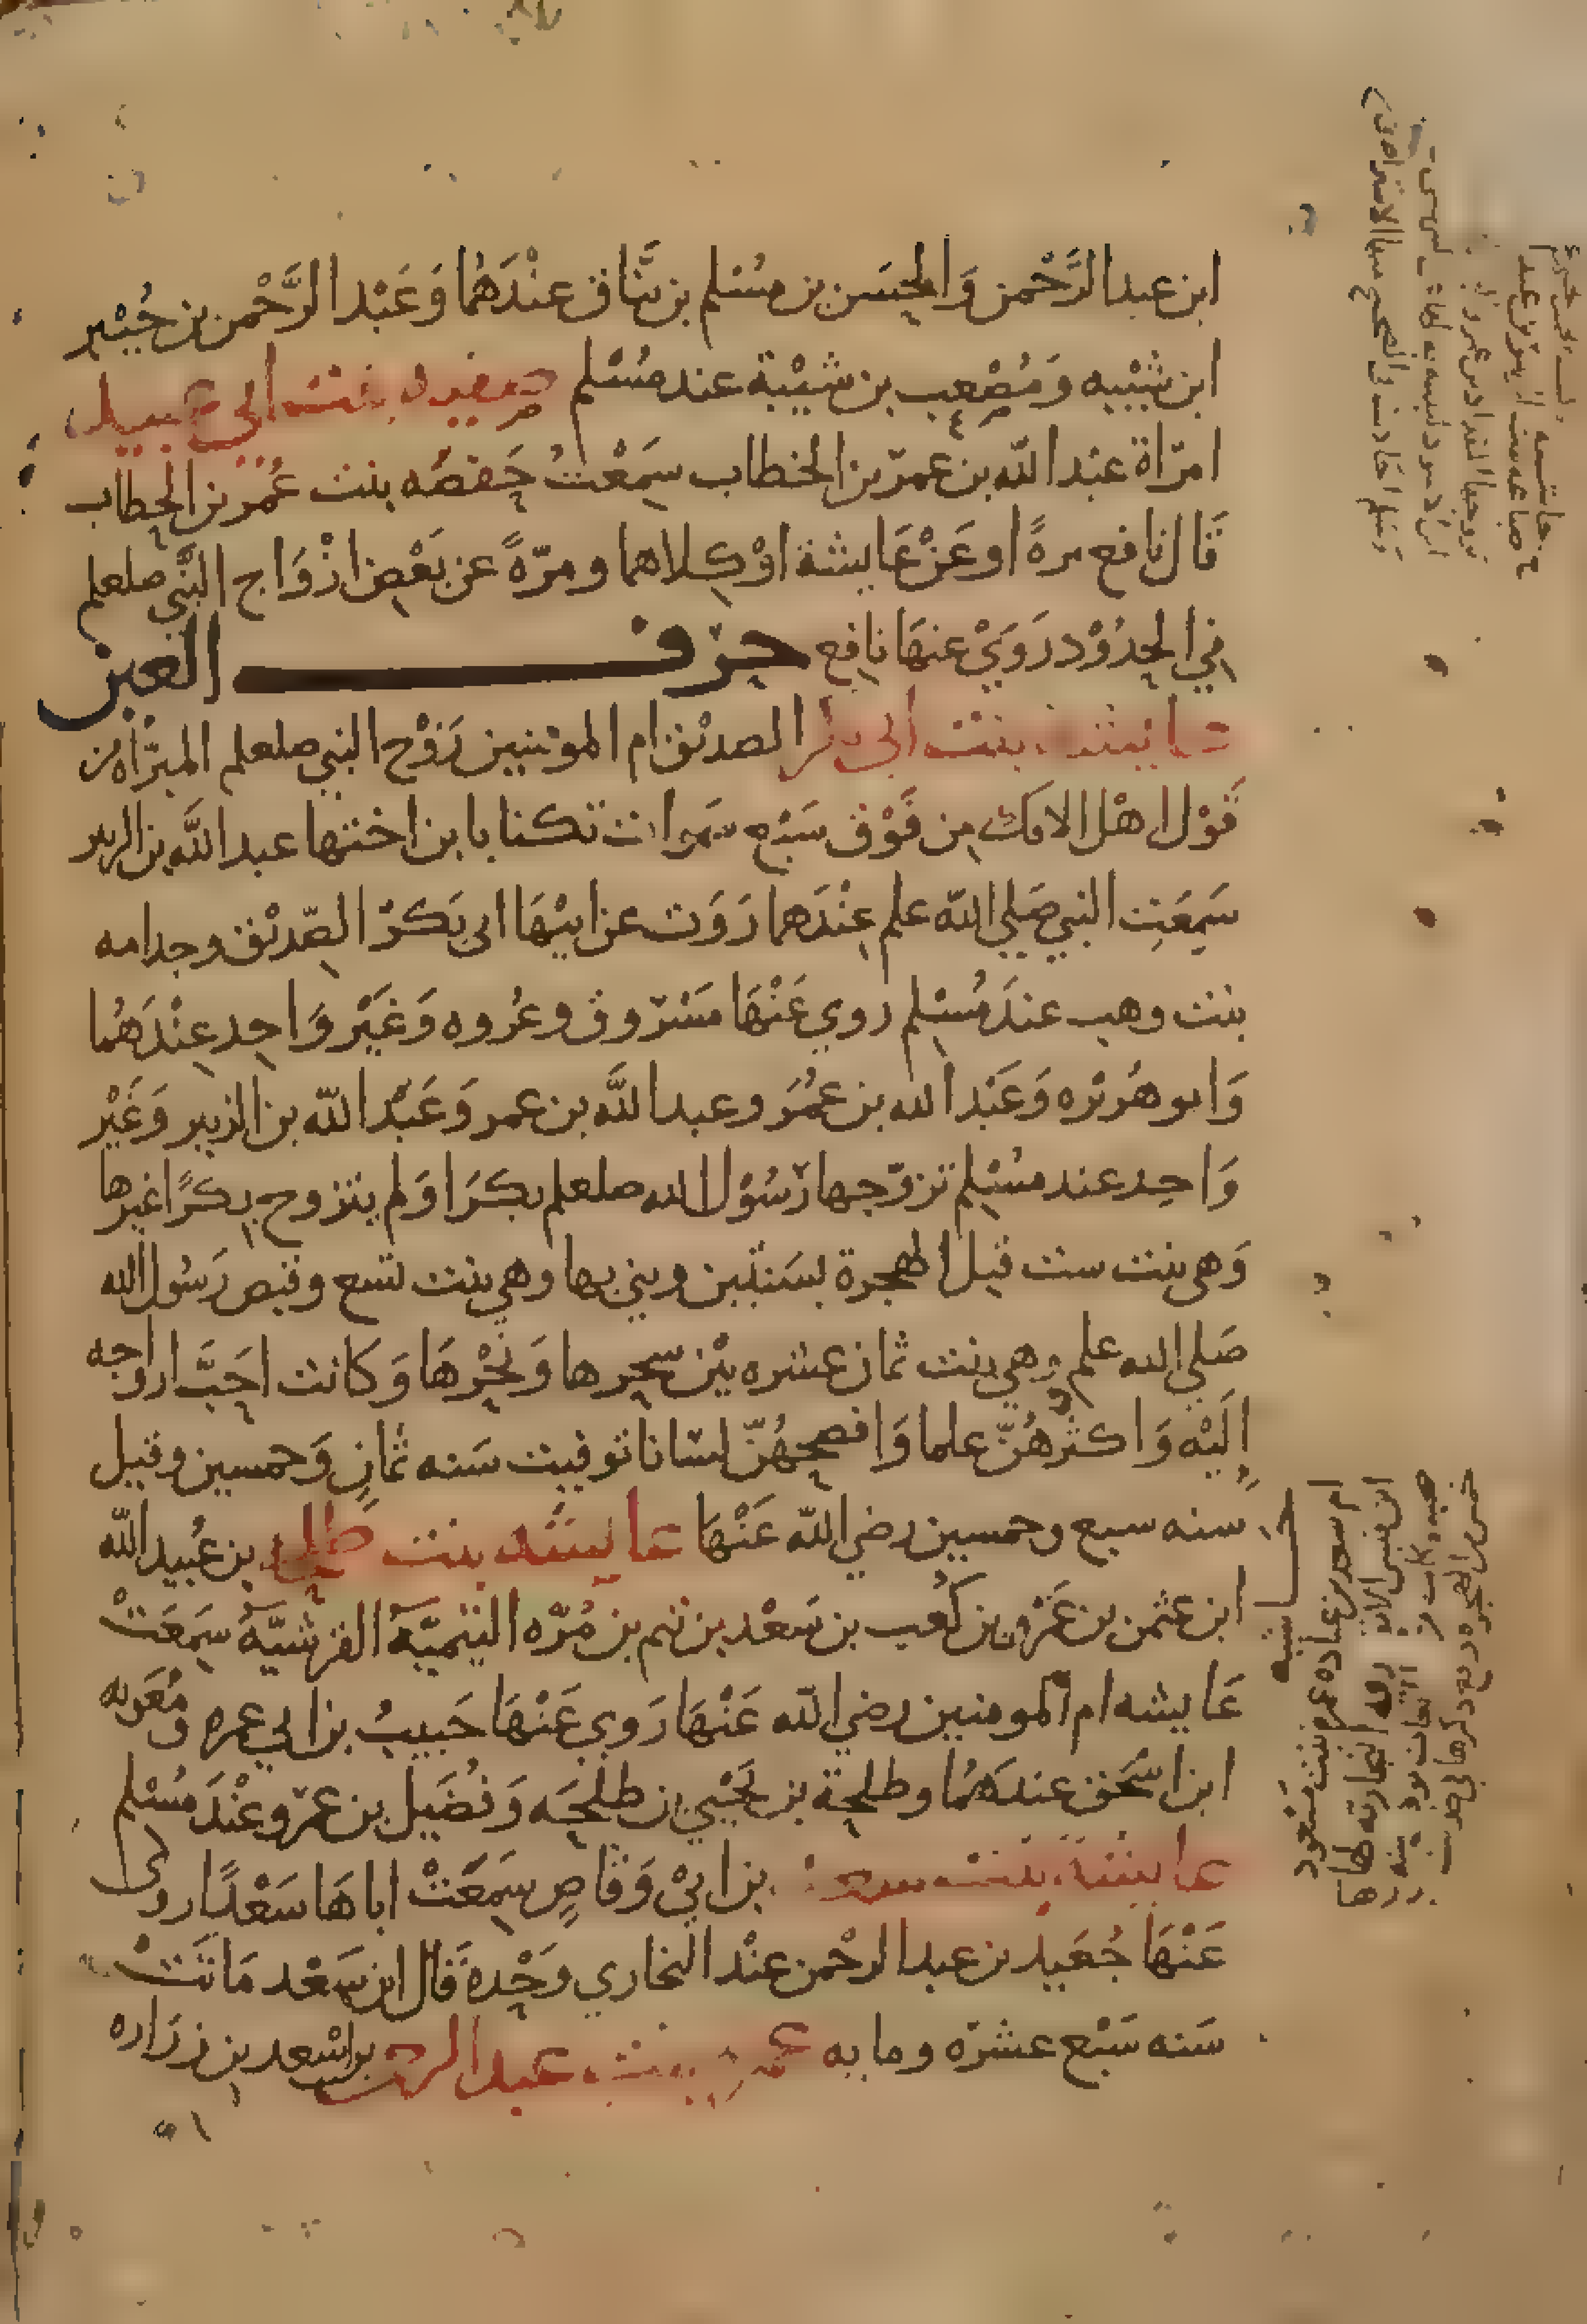 ابن عبد الرَّحْمن وَالحَسَن بن مُسْلم بن يَنَّاق عنْدَهُما وَعَبْد الرَّحْمن بن جُبَيْر
ابن شَيْبه وَمُصْعب بن شَيْبَة عند مُسْلم صفيه بنت ابي عبيد
امرّاة عبد الله بن عمرّ بن الخطاب سَمِعَتْ حَفصَه بنت عُمَر بن الخطاب
قَال نافع مرةً او عَنْ عَايشة اوْ كِلاهما ومرّةً عن بَعْضِ ازْوَاج النَّبي صلعلم
فِي الحِدُوْد رَوَيْ عنهَا نافع حرْف العين
عايشه بنت ابي بكر الصديْق ام المومنين زَوْج النبي صلعلم المبرّأه من
قَوْل اهْل الافك مِن فَوْق سَبْع سَموات تكنا بابن اختها عبد الله بن الزبير
سَمِعَتِ النبي صَلي الله علم عِنْدَهما رَوَت عن ابيْهَا ابي بَكرْ الصّديْق وجدامه
بنت وهب عندَ مُسْلِم روي عَنْهَا مَسْرّوق وعُروه وَغيَرْ وَاحِدِ عِنْدَهُما
وَابو هُريْره وَعَبْد الله بن عمُرَ وعبد اللَّه بن عمر وَعَبْد الله بن الزبير وَغَيْر
وَاحِد عند مسُلِم تزوّجها رَسُوْل الله صلعلم بكرَا وَلم يتزوج بِكرًا غيرها
وَهي بنت ست قبل الهجرة بسَنتَين وبني بها وهي بنت تسع وقبض رَسُول الله
صَلي الله علم وهي بنت ثمان عشره بيْن سحرها وَنَحْرهَا وَكانت احَبَّ ازواجه
اِلَيْه وَاكثرُهُنّ علما وَافصحهُنّ لسَانا توفيت سَنه ثمَانِ وَخمسين وقيل
سنه سبع وخمسين رضي الله عَنْهَا عايشه بنت طلحه بن عُبيد الله
ابن عثمن بن عَمْرو بن كَعْب بن سَعْد بن تيم بن مُرّه التيْميّة القرشيَّة سَمِعَتْ
عَايشه ام المومنين رضي الله عَنْهَا رَوي عَنْهَا حَبيبُ بن ابي عمره ومُعَويه
ابن اسْحَق عندَهمُا وطلحَة بن يَحْيي بن طلْحَه وَفُضَيْل بن عمرْو عنْدَ مُسْلم
عايشة بنت سعد بن ابيْ وَقاصٍ سَمِعَتْ اباهَا سَعْدًا روي
عَنْهَا جُعَيد بن عبد الرحْمن عنْد البخاري وَحْدهُ قَال ابن سَعْد مَاتَتْ
سَنه سَبْع عشرَه ومايه عمره بنت عبد الرحمن بن اسْعد بن زرَاره
ام سعد بن عباده عمره بنت مسعود